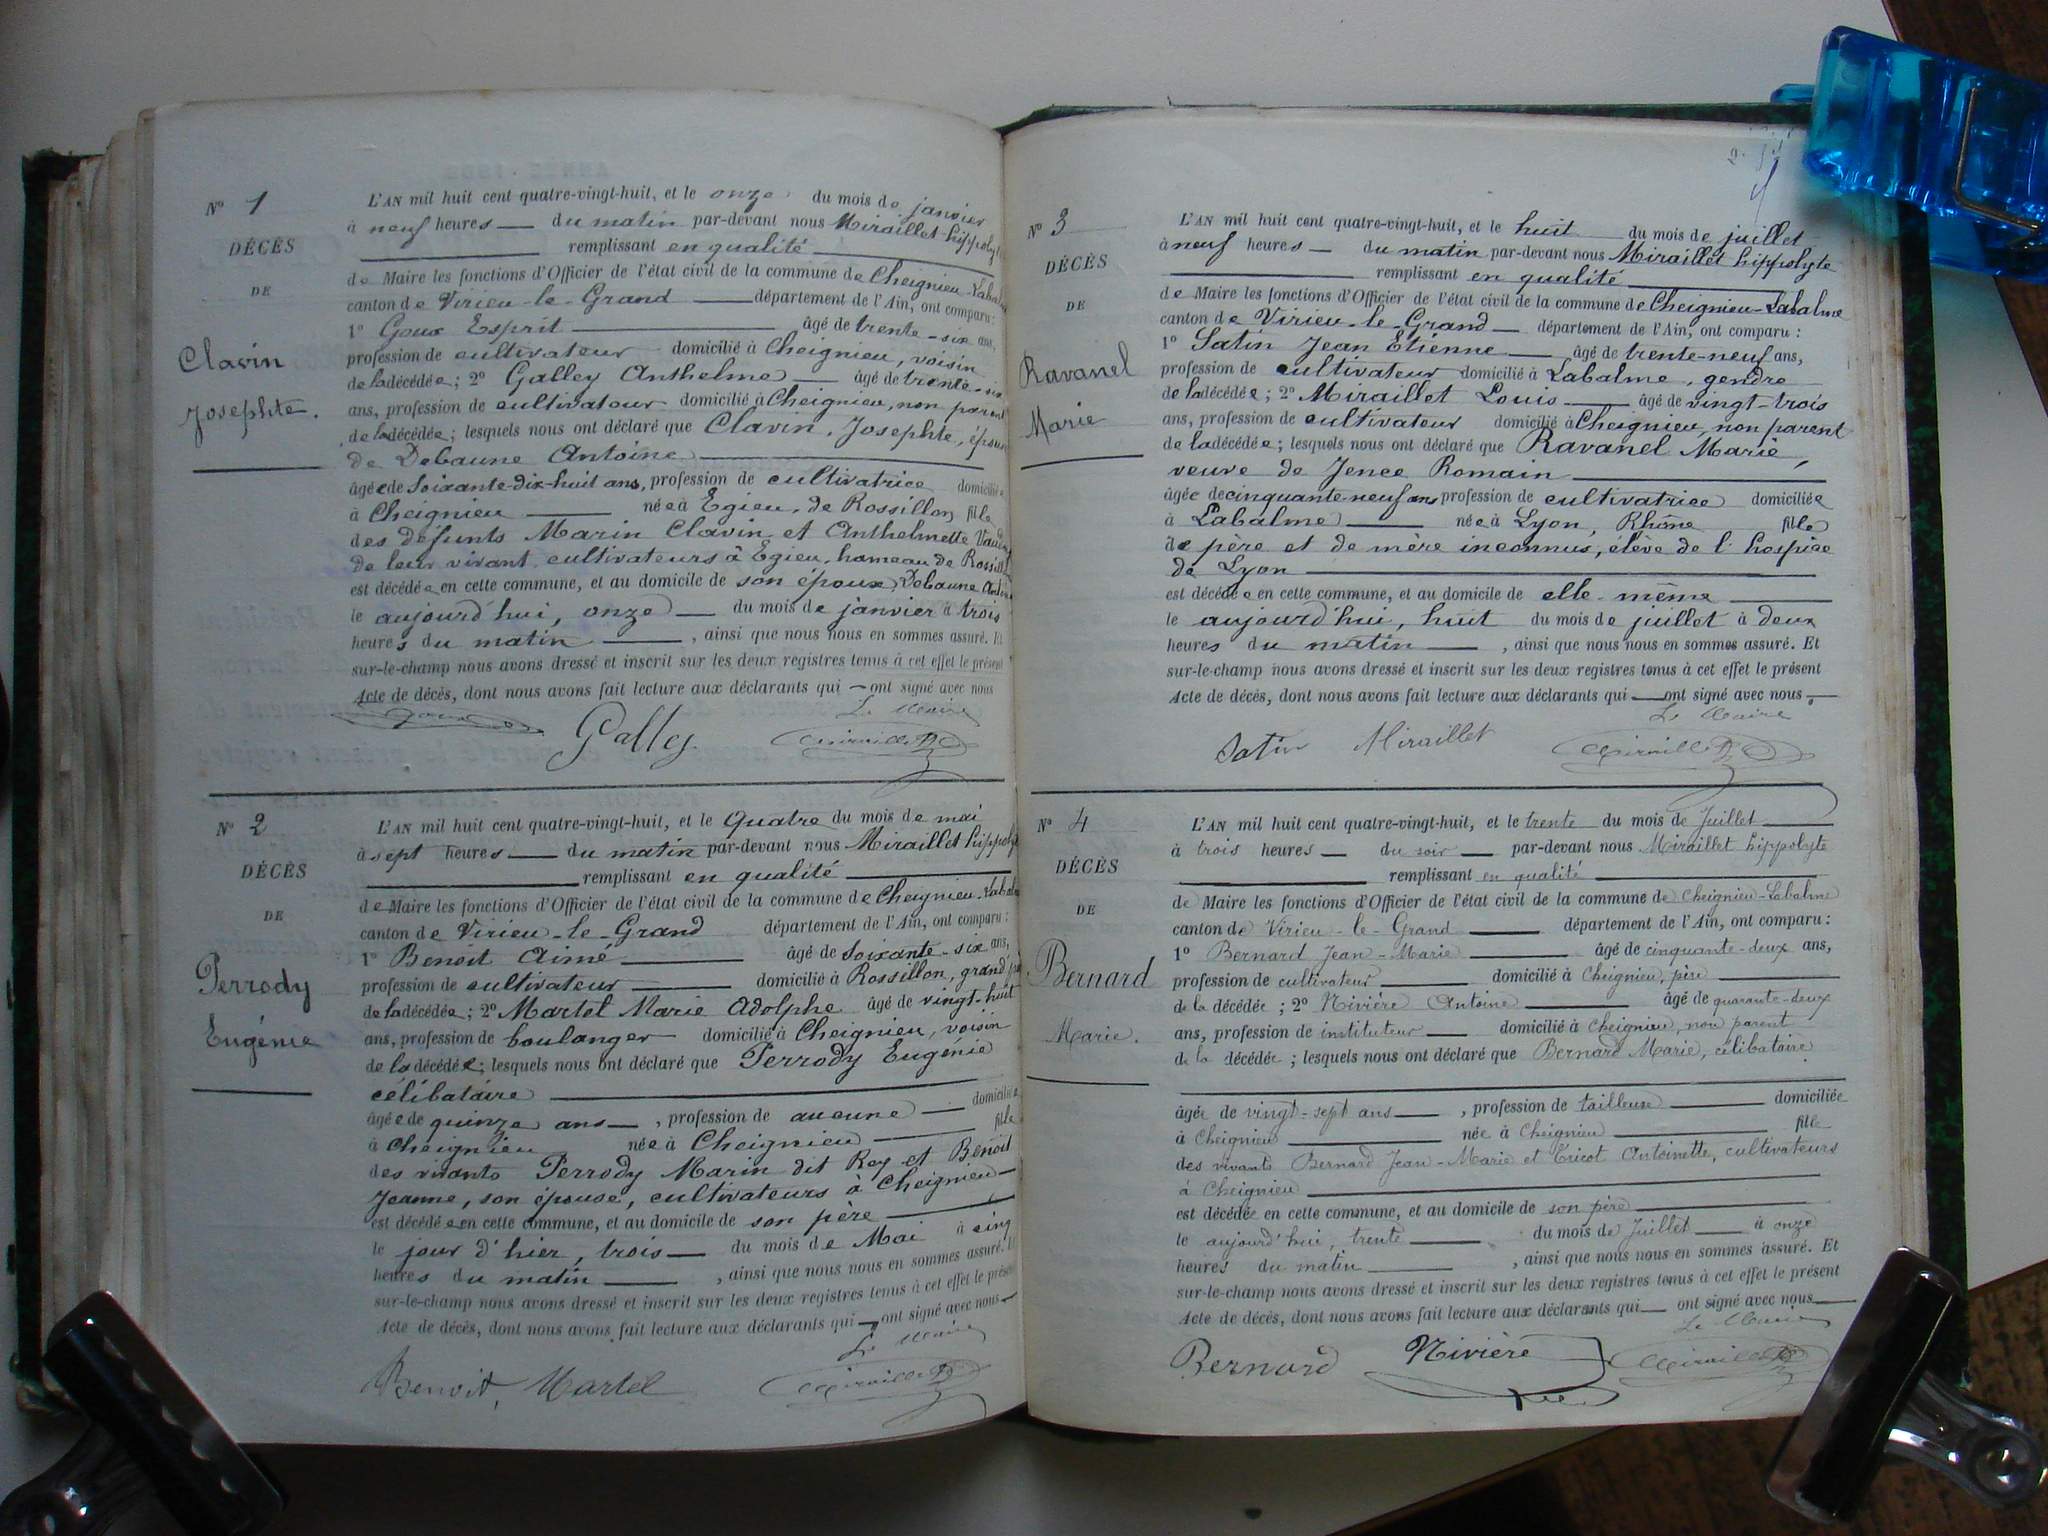 N° 1
DÉCÈS
DE
Clavin
Josephte.
L'AN mil huit cent quatre-vingt-huit, et le onze du mois de janvier
à neuf heures du matin par-devant nous Miraillet hippolyte
remplissant en qualité
de Maire les fonctions d'Officier de l'état civil de la commune de Cheignieu-Labalme
canton de Virieu-le-Grand département de l'Ain, ont comparu :
1° Goux Esprit âgé de trente-six ans,
profession de cultivateur domicilié à Cheignieu, voisin
de la décédée ; 2° Galley Anthelme âgé de trente-six
ans, profession de cultivateur domicilié à Cheignieu, non parent
de la décédée ; lesquels nous ont déclaré que Clavin, Josephte, épouse
de Debaune Antoine
âgée de soixante-dix-huit ans, profession de cultivatrice domiciliée
à Cheignieu née à Egieu, de Rossillon, fille
des défunts Marin Clavin et Anthelmette
de leur vivant cultivateurs à Egieu, hameau de Rossillon
est décédée en cette commune, et au domicile de son époux, Debaune Antoine
le aujourd'hui, onze du mois de janvier à trois
heures du matin , ainsi que nous nous en sommes assuré. Et
sur-le-champ nous avons dressé et inscrit sur les deux registres tenus à cet effet le présent
Acte de décès, dont nous avons fait lecture aux déclarants qui ont signé avec nous
Le Maire
Goux Galley Miraillet
N° 2
DÉCÈS
DE
Perrody
Eugénie
L'AN mil huit cent quatre-vingt-huit, et le quatre du mois de mai
à sept heures du matin par-devant nous Miraillet hippolyte
remplissant en qualité
de Maire les fonctions d'Officier de l'état civil de la commune de Cheignieu-Labalme
canton de Virieu-le-Grand département de l'Ain, ont comparu :
1° Benoit Aimé âgé de soixante-six ans,
profession de cultivateur domicilié à Rossillon, grand père
de la décédée ; 2° Martel Marie Adolphe âgé de vingt-huit
ans, profession de boulanger domicilié à Cheignieu, voisin
de la décédée ; lesquels nous ont déclaré que Perrody Eugénie
célibataire
âgée de quinze ans , profession de aucune domiciliée
à Cheignieu née à Cheignieu fille
des vivants Perrody Marin dit Rey et Benoit
Jeanne, son épouse, cultivateurs à Cheignieu
est décédée en cette commune, et au domicile de son père
le jour d'hier, trois du mois de Mai à cinq
heures du matin , ainsi que nous nous en sommes assuré. Et
sur-le-champ nous avons dressé et inscrit sur les deux registres tenus à cet effet le présent
Acte de décès, dont nous avons fait lecture aux déclarants qui ont signé avec nous
Le Maire
Benoit, Martel Miraillet
N° 3
DÉCÈS
DE
Ravanel
Marie
L'AN mil huit cent quatre-vingt-huit, et le huit du mois de juillet
à neuf heures du matin par-devant nous Miraillet hippolyte
remplissant en qualité
de Maire les fonctions d'Officier de l'état civil de la commune de Cheignieu-Labalme
canton de Virieu-le-Grand département de l'Ain, ont comparu :
1° Satin Jean Etienne âgé de trente-neuf ans,
profession de cultivateur domicilié à Labalme, gendre
de la décédée ; 2° Miraillet Louis âgé de vingt-trois
ans, profession de cultivateur domicilié à Cheignieu, non parent
de la décédée ; lesquels nous ont déclaré que Ravanel Marie,
veuve de Jence Romain
âgée de cinquante-neuf ans profession de cultivatrice domiciliée
à Labalme née à Lyon, Rhône fille
de père et de mère inconnus, élève de l'hospice
de Lyon
est décédée en cette commune, et au domicile de elle-même
le aujourd'hui, huit du mois de juillet à deux
heures du matin , ainsi que nous nous en sommes assuré. Et
sur-le-champ nous avons dressé et inscrit sur les deux registres tenus à cet effet le présent
Acte de décès, dont nous avons fait lecture aux déclarants qui ont signé avec nous.
Le Maire
Satin Miraillet Miraillet
N° 4
DÉCÈS
DE
Bernard
Marie.
L'AN mil huit cent quatre-vingt-huit, et le trente du mois de Juillet
à trois heures du soir par-devant nous Miraillet hippolyte
remplissant en qualité
de Maire les fonctions d'Officier de l'état civil de la commune de Cheignieu-Labalme
canton de Virieu-le-Grand département de l'Ain, ont comparu :
1° Bernard Jean-Marie âgé de cinquante-deux ans,
profession de cultivateur domicilié à Cheignieu, père
de la décédée ; 2° Nivière Antoine âgé de quarante-deux
ans, profession de instituteur domicilié à Cheignieu, non parent
de la décédée ; lesquels nous ont déclaré que Bernard Marie, célibataire
âgée de vingt-sept ans , profession de tailleuse domiciliée
à Cheignieu née à Cheignieu fille
des vivants Bernard Jean-Marie et Tricot Antoinette, cultivateurs
à Cheignieu
est décédée en cette commune, et au domicile de son père
le aujourd'hui, trente du mois de Juillet à onze
heures du matin , ainsi que nous nous en sommes assuré. Et
sur-le-champ nous avons dressé et inscrit sur les deux registres tenus à cet effet le présent
Acte de décès, dont nous avons fait lecture aux déclarants qui ont signé avec nous
Le Maire
Bernard Nivière Miraillet